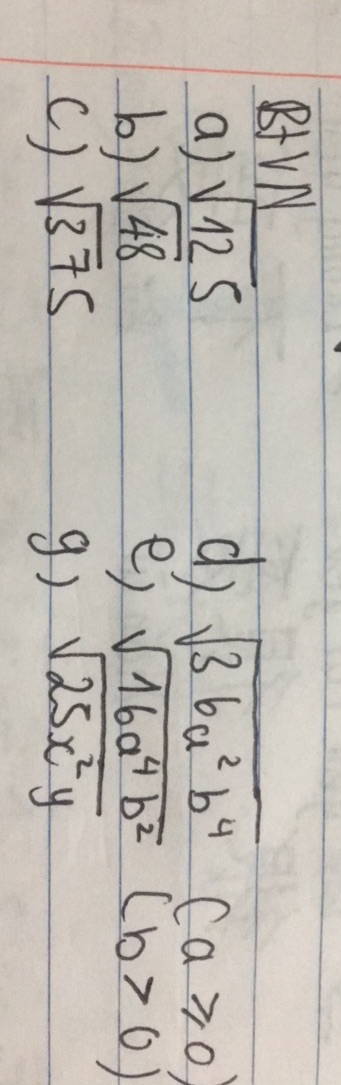 BTVN
a) √125 d) √36a²b⁴ (a ≥ 0)
b) √48 e) √16a⁴b² (b > 0)
c) √375 g) √25x²y